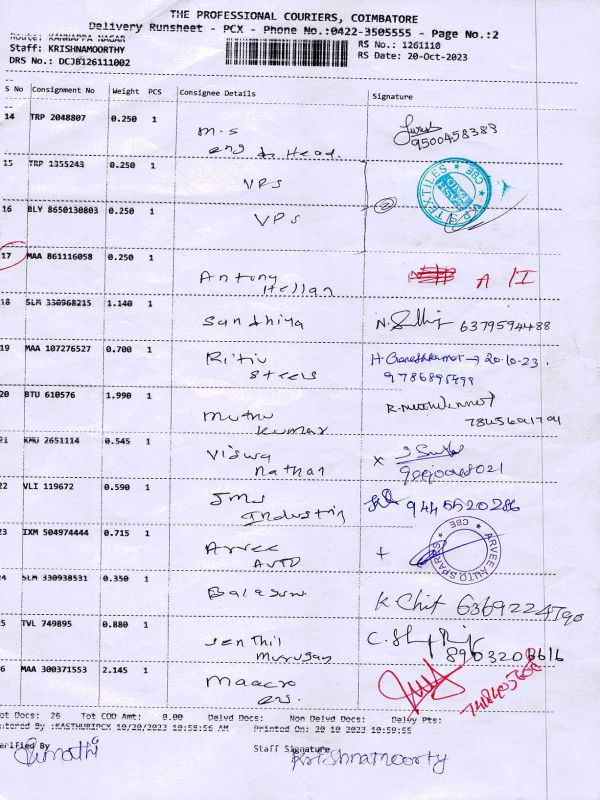 THE PROFESSIONAL COURIERS, COIMBATORE
Delivery Runsheet - PCX - Phone No.:0422-3505555 - Page No.:2
Route: KANNAPPA NAGAR
RS No.: 1261110
Staff: KRISHNAMOORTHY
RS Date: 20-Oct-2023
DRS No.: DCJB126111002
S No Consignment No Weight PCS Consignee Details Signature
14 TRP 2048807 0.250 1
M.S
9500458383
Head.
15 TRP 1355243 0.250 1
VPS
V.P.S TEXTILES ★ CBE ★
CASH PAID
16 BLY 8650130803 0.250 1
VPS
2
17 MAA 861116058 0.250 1
Antony
Hellan
A /I
18 SLM 330968215 1.140 1
Sandhiya
6379594488
19 MAA 107276527 0.700 1
Ritiu
Steels
H. Ganeshkumar → 20.10.23.
20 BTU 610576 1.990 1
Muthu
Kumar
21 KMU 2651114 0.545 1
Viswa
Nathan
x
22 VLI 119672 0.590 1
JMS
Industrin
9445520286
23 IXM 504974444 0.715 1
Arvee
AUTO
+
ARVEE AUTO SPARES ★ CBE ★
24 SLM 330938531 0.350 1
Balasun
K Chit
5 TVL 749895 0.880 1
Senthil
Murugan
8903206616
6 MAA 300371553 2.145 1
Maacro
ot Docs: 26 Tot COD Amt: 0.00 Delvd Docs: Non Delvd Docs: Delvy Pts:
ntered By :KASTHURIPCX 10/20/2023 10:59:56 AM Printed On: 20 10 2023 10:59:55
erified By
Staff Signature
Sumathi
Krishnamoorty